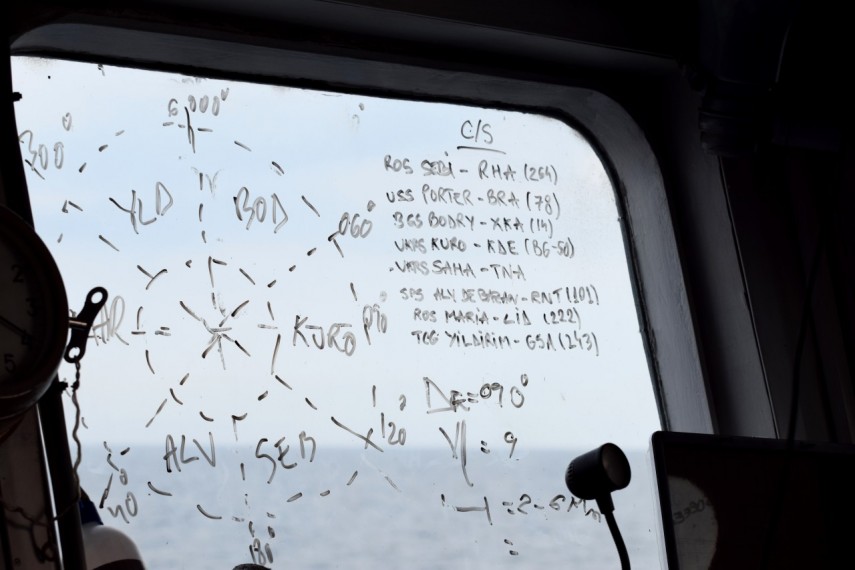 000°
300
N
YLD BOD
060°
KURO 090
ALV SEB
120
180
C/S
ROS SEBI - RHA (264)
USS PORTER - BRA (78)
BGS BODRY - XKA (14)
UKRS KURO - KDE (BG-50)
UKRS SAHA - TNA
SPS ALV DE BAZAN - RNT (101)
ROS MARIA - LID (222)
TCG YILDIRIM - GSA (243)
= 090°
V = 9
= 2-6